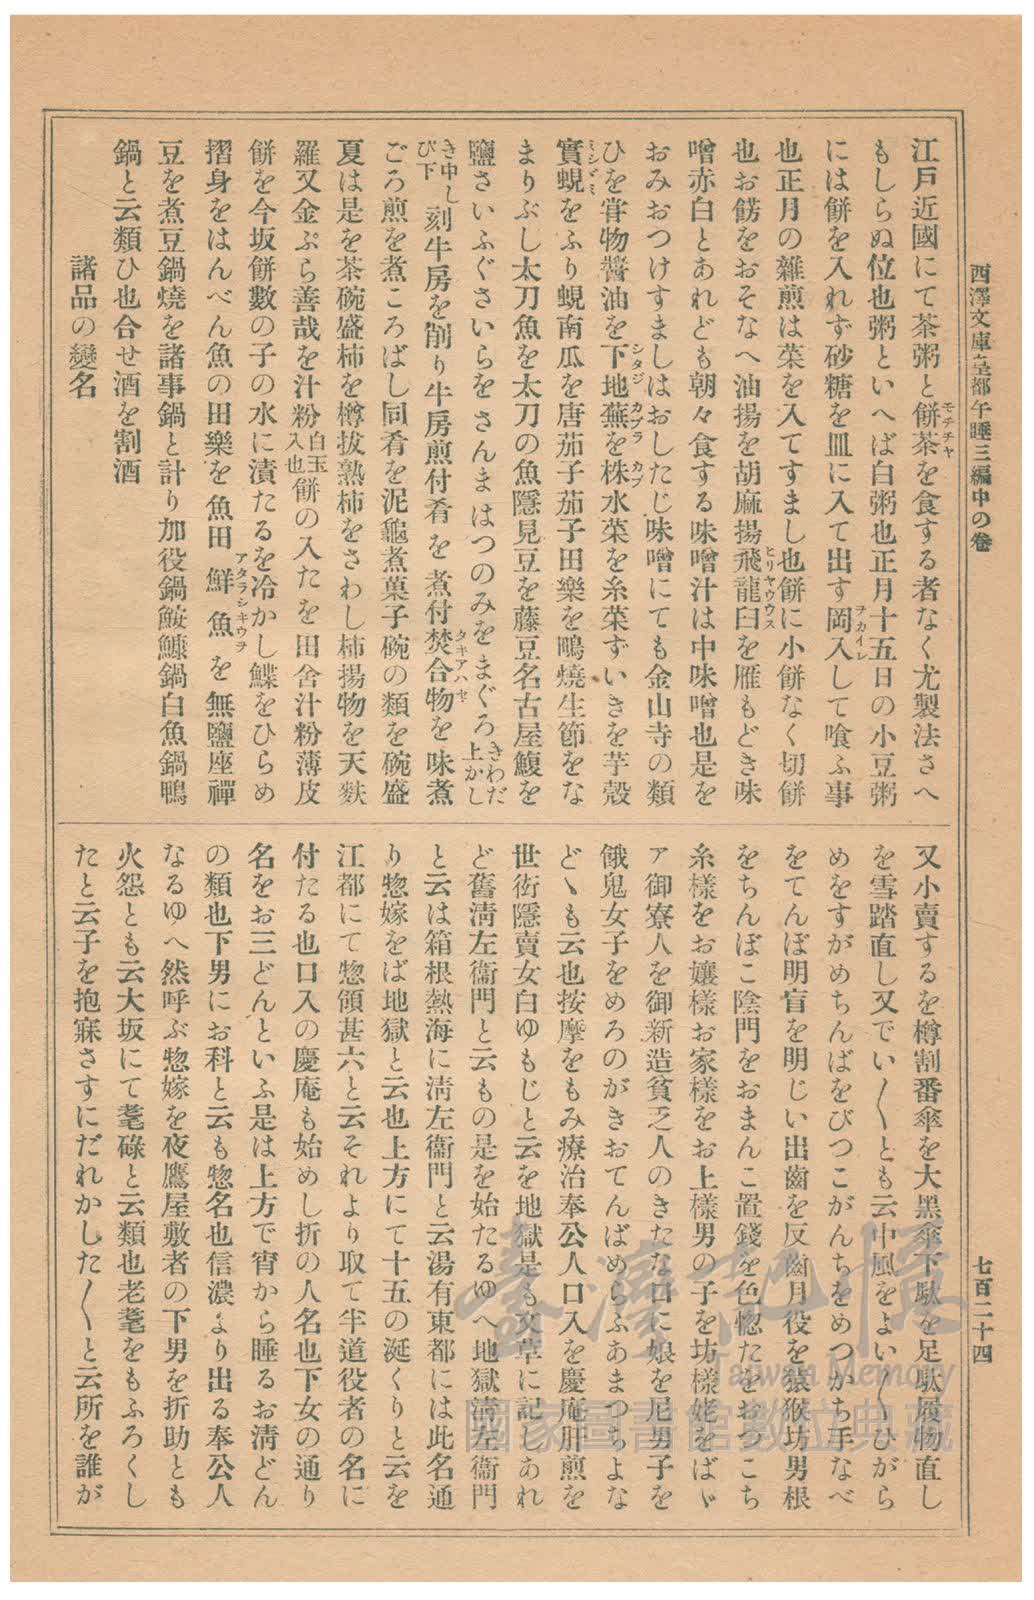 西澤文庫皇都午睡三編中の巻
七百二十四
江戸近國にて茶粥と餅茶を食する者なく尤製法さへ
もしらぬ位也粥といへば白粥也正月十五日の小豆粥
には餅を入れず砂糖を皿に入て出す岡入して喰ふ事
也正月の雜煎は菜を入てすまし也餅に小餅なく切餅
也お餝をおそなへ油揚を胡麻揚飛龍臼を雁もどき味
噌赤白とあれども朝々食する味噌汁は中味噌也是を
おみおつけすましはおしたじ味噌にても金山寺の類
ひを甞物醬油を下地蕪を株水菜を糸菜ずいきを芋殼
實蜆をふり蜆南瓜を唐茄子茄子田樂を鴫燒生節をな
まりぶし太刀魚を太刀の魚隱見豆を藤豆名古屋鰒を
鹽さいふぐさいらをさんまはつのみをまぐろきわだ上かし
き中しび下刻牛房を削り牛房煎付肴を煮付焚合物を味煮
ごろ煎を煮ころばし同肴を泥龜煮菓子碗の類を碗盛
夏は是を茶碗盛柿を樽拔熟柿をさわし柿揚物を天麩
羅又金ぷら善哉を汁粉白玉入也餅の入たを田舍汁粉薄皮
餅を今坂餅數の子の水に漬たるを冷かし鰈をひらめ
摺身をはんべん魚の田樂を魚田鮮魚を無鹽座禪
豆を煮豆鍋燒を諸事鍋と計り加役鍋鮟鱇鍋白魚鍋鴨
鍋と云類ひ也合せ酒を割酒
諸品の變名
又小賣するを樽割番傘を大黑傘下駄を足駄履物直し
を雪踏直し又でい〳〵とも云中風をよい〳〵ひがら
めをすがめちんばをびつこがんちをめつかち手なべ
をてんぼ明盲を明じい出齒を反齒月役を猿猴坊男根
をちんぼこ陰門をおまんこ置錢を色惚たをおつこち
糸樣をお孃樣お家樣をお上樣男の子を坊樣姥をばゞ
ア御寮人を御新造貧乏人のきたな口に娘を尼男子を
餓鬼女子をめろのがきおてんばめらふあまつちよな
どゝも云也按摩をもみ療治奉公人口入を慶庵肝煎を
世衒隱賣女白ゆもじと云を地獄是も文草に記しあれ
ど舊淸左衞門と云もの是を始たるゆへ地獄淸左衞門
と云は箱根熱海に淸左衞門と云湯有東都には此名通
り惣嫁をば地獄と云也上方にて十五の涎くりと云を
江都にて惣領甚六と云それより取て半道役者の名に
付たる也口入の慶庵も始めし折の人名也下女の通り
名をお三どんといふ是は上方で宵から睡るお淸どん
の類也下男にお科と云も惣名也信濃より出る奉公人
なるゆへ然呼ぶ惣嫁を夜鷹屋敷者の下男を折助とも
火怨とも云大坂にて耄碌と云類也老耄をもふろくし
たと云子を抱寐さすにだれかした〳〵と云所を誰が
臺灣記憶
Taiwan Memory
國家圖書館數位典藏